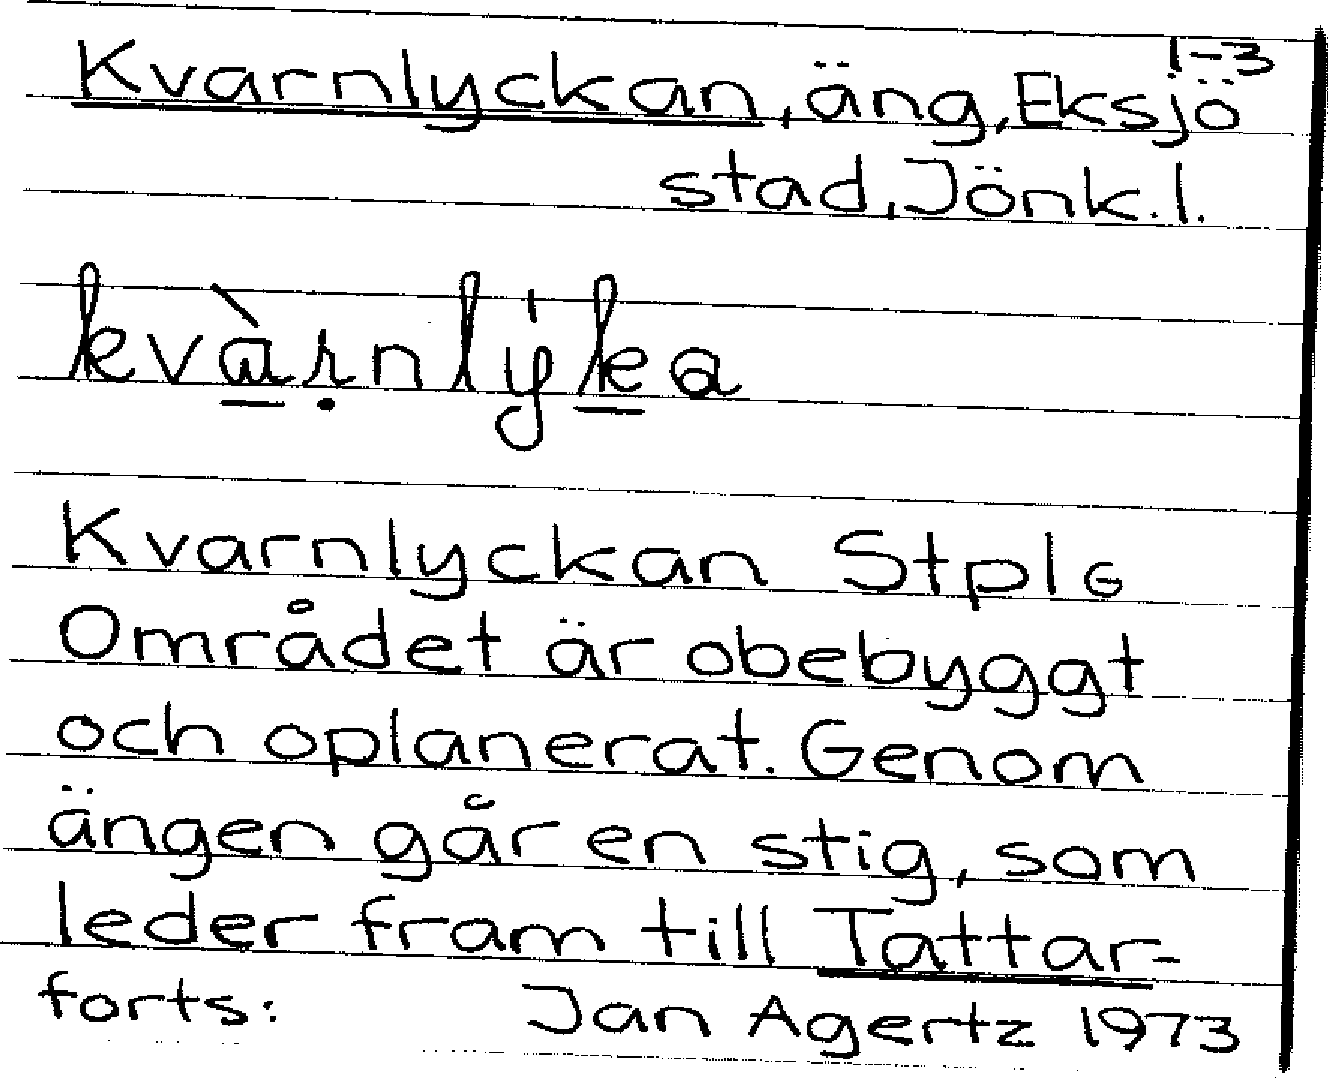 1-3
Kvarnlyckan, äng, Eksjö
stad, Jönk.l.
kvàrnlyka
Kvarnlyckan Stpl G
Området är obebyggt
och oplanerat. Genom
ängen går en stig, som
leder fram till Tattar-
forts: Jan Agertz 1973